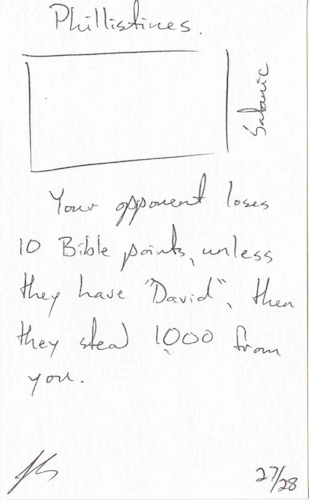 Phillistines.
Satanic
Your opponent loses
10 Bible points, unless
they have "David", then
they steal 1000 from
you.
27/28